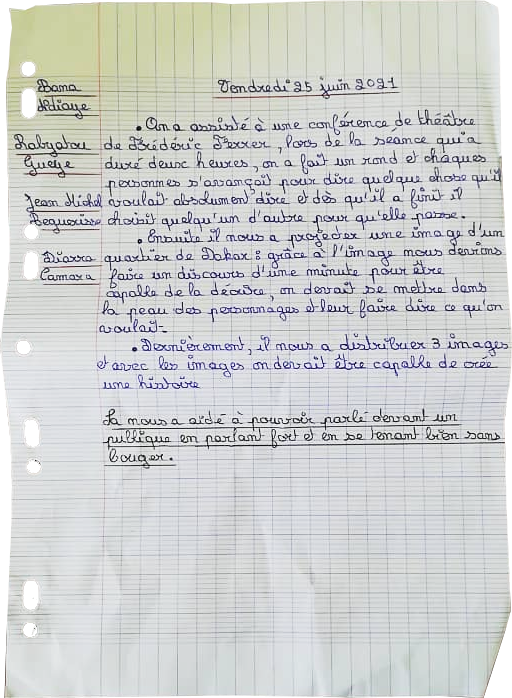 Vendredi 25 juin 2021
Dama
Ndiaye
Rabyatou
Gueye
Jean Michel
Beguorisse
Diarra
Camara
• On a assisté à une conférence de théâtre
de Frédéric Ferrer, lors de la séance qui a
duré deux heures, on a fait un rond et chaques
personnes s'avançait pour dire quelque chose qu'il
voulait absolument dire et dès qu'il a finit il
choisit quelqu'un d'autre pour qu'elle passe.
• Ensuite il nous a projeter une image d'un
quartier de Dakar : grâce à l'image nous devions
faire un discours d'une minute pour être
capable de la décrire, on devait se mettre dans
la peau des personnages et leur faire dire ce qu'on
voulait.
• Dernièrement, il nous a distribuer 3 images
et avec les images on devait être capable de crée
une histoire
Sa nous a aidé à pouvoir parlé devant un
publique en parlant fort et en se tenant bien sans
bouger.